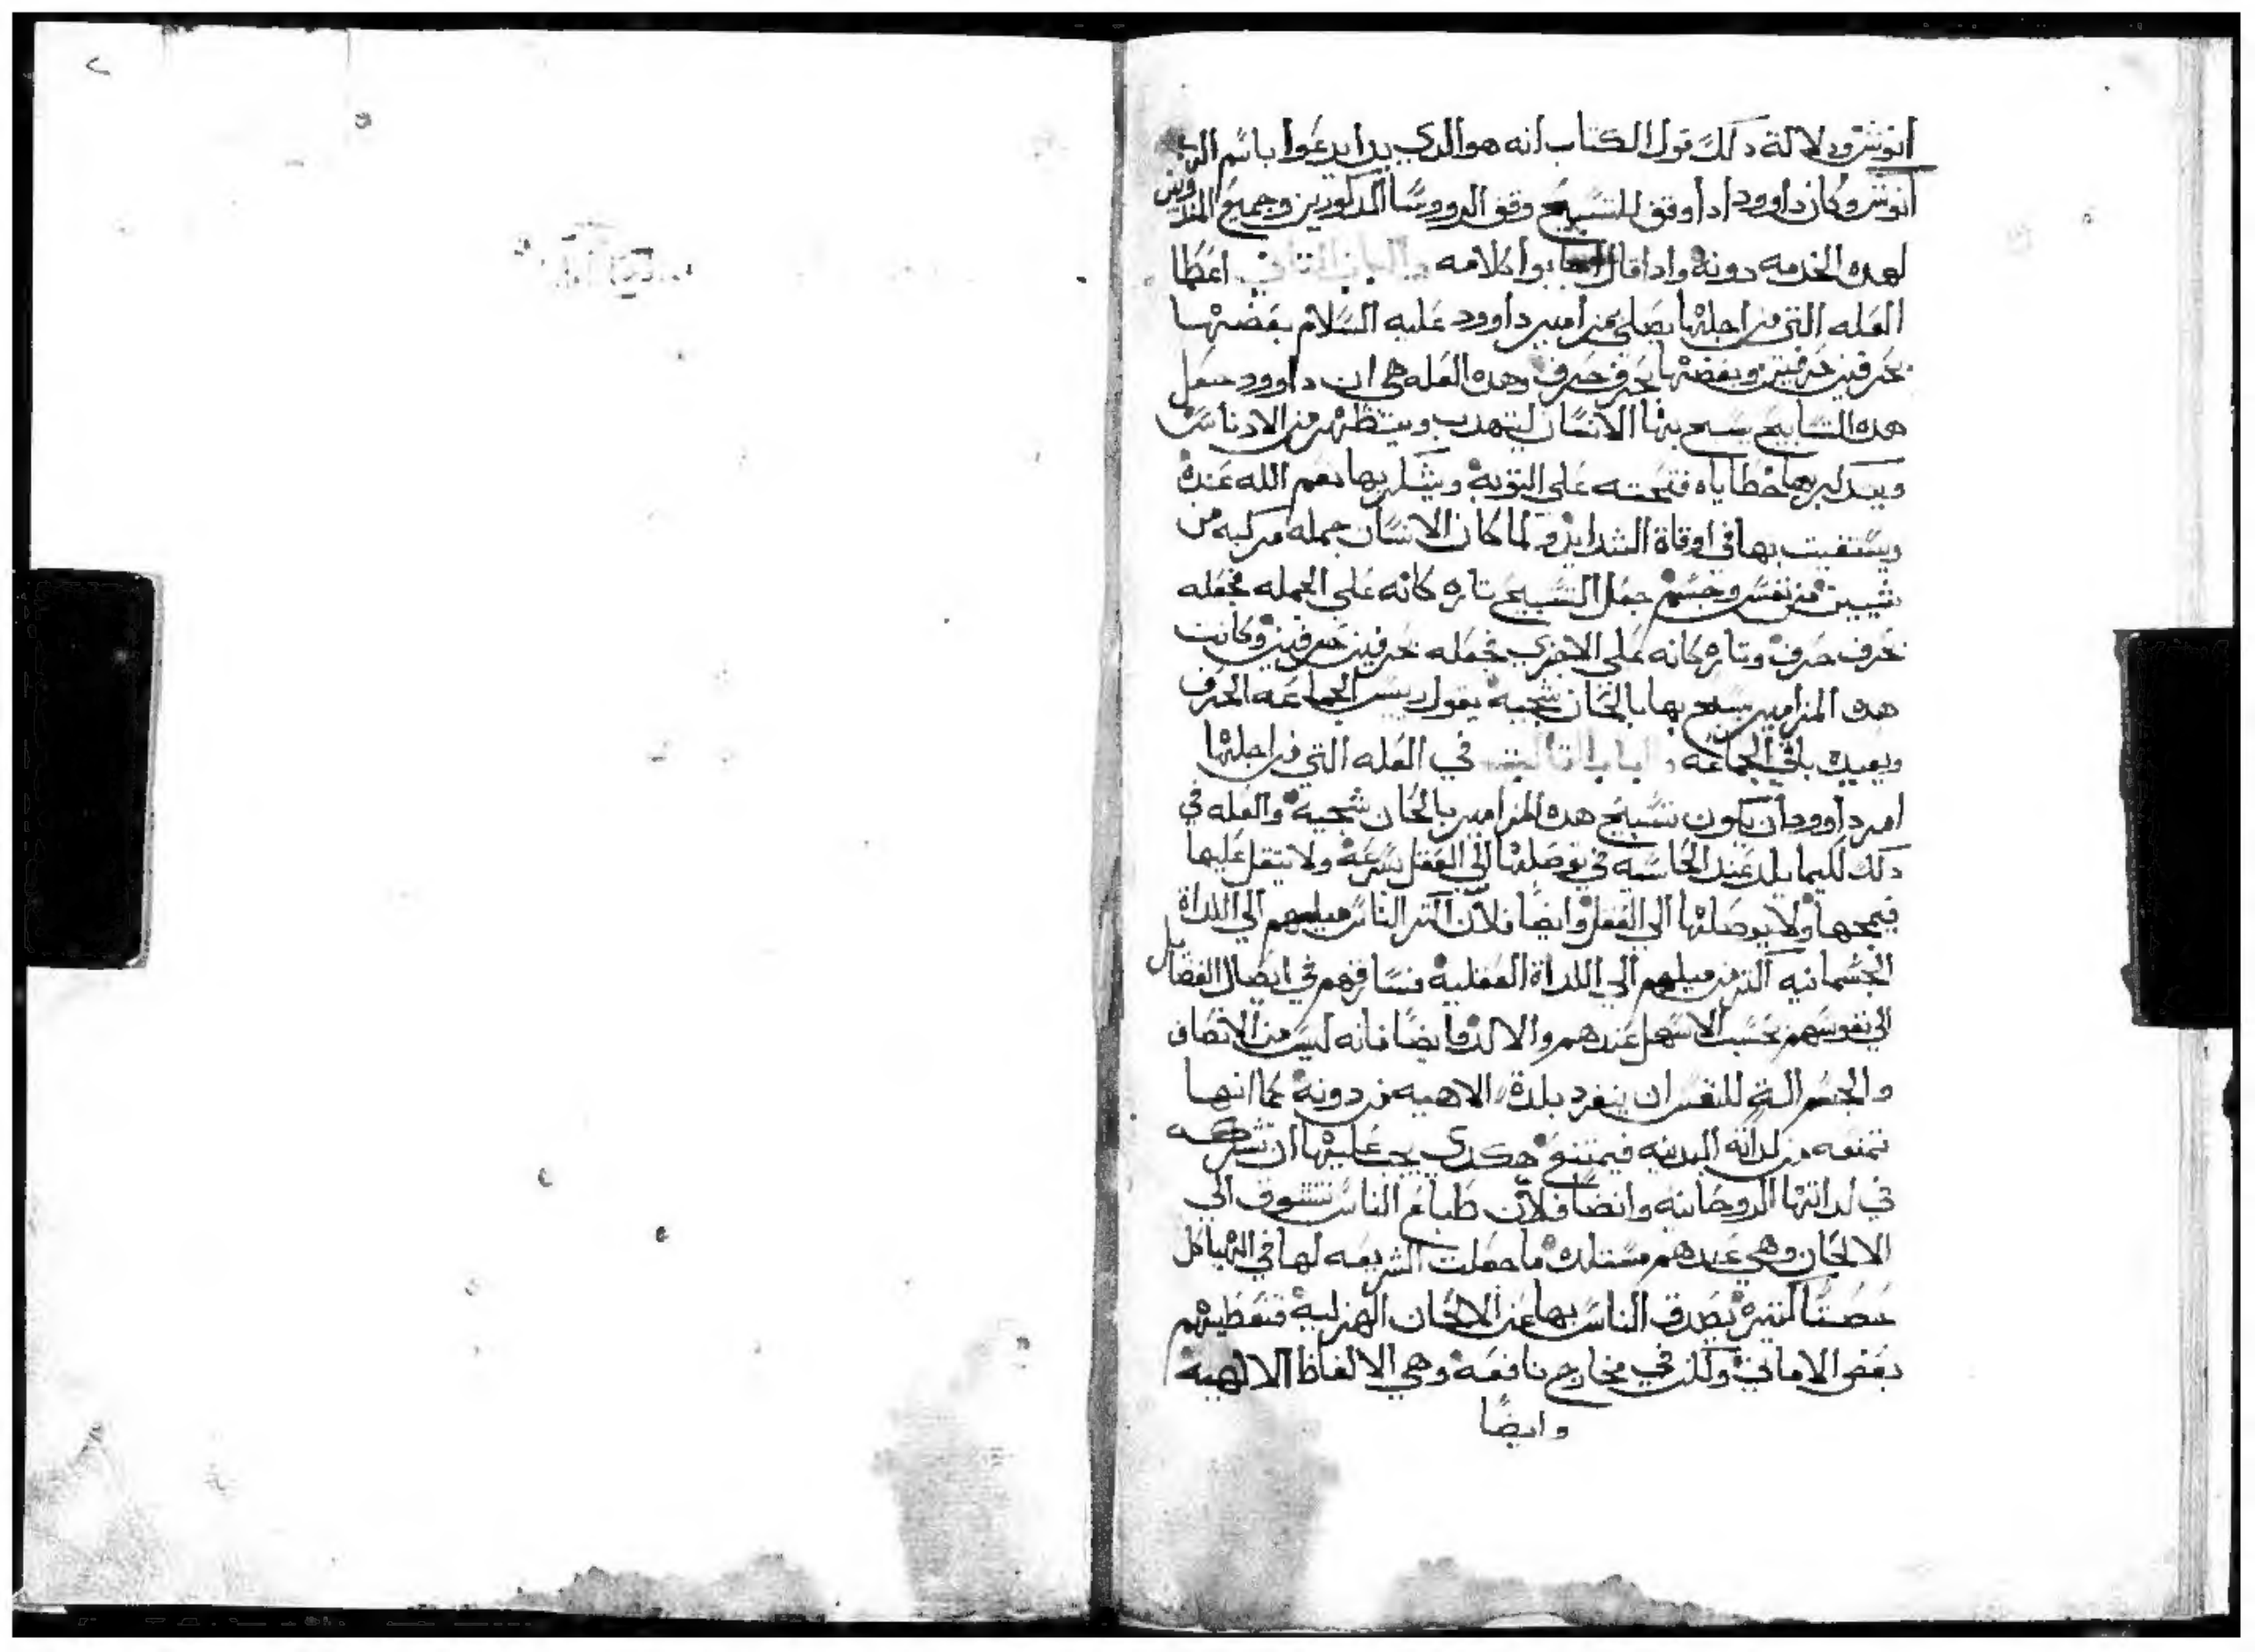 انوش ودلالة دلك قول الكتاب انه هو الدي بدا يدعوا باسم الرب
انوش وكان داوود ادا وقف للتسبيح وقف الرووسا المدكورين وجميع
لهده الخدمه دونه وادا قال اجابوا كلامه والباب الثاني اعطا
العله التي من اجلها يصلي بمزامير داوود عليه السلام بعضها
بحرفين حرفين وبعضها بحرف حرف وهده العله هي ان داوود جعل
هده التسابيح يسبح بها الانسان ليتهدب ويتطهر من الادناس
ويتدكر بها خطاياه فتحته على التوبه ويشكر بها نعم الله عنده
ويستغيت بها في اوقاة الشدايد ولما كان الانسان جمله مركبه من
شيين من نفس وجسم جعل التسبيح تاره كانه على الجمله فجعله
بحرف حرف وتاره كانه على الاجزي فجعله بحرفين حرفين وكانت
هده المزامير يسبح بها بالحان شجيه يقول رييس الجماعه الحرف
ويعيده باقي الجماعه والباب التالت في العله التي من اجلها
امر داوود ان يكون تسبيح هده المزامير بالحان شجيه والعله في
دلك لكيما يلد عند الحاسه في توصلها الي العقل بسرعه ولا يتقل عليها
فيمجها ولا يوصلها الي العقل وايضا فلان اكتر الناس ميلهم الي اللداة
الجسمانيه اكتر من ميلهم الي اللداة العقليه فسافرهم في ايصال الفضايل
الي نفوسهم بحسب الاسهل عندهم والالد وايضا فانه ليس من الانصاف
والجسم الة للنفس ان ينفرد بلدة الاهيه من دونه كما انها
تمنعه من لداته البدنيه فيمتنع هكدي يجب عليها ان تشركه
في لداتها الروحانيه وايضا فلان طباع الناس تتشوق الي
الالحان وهي عندهم مستلده ما جعلت الشريعه لها في الهياكل
حصصا كتيره يصدق الناس بها عن الالحان الهزليه فتعطيهم
بعض الاماني ولكن في مخارج نافعه وهي الالفاظ الالهيه
وايضا